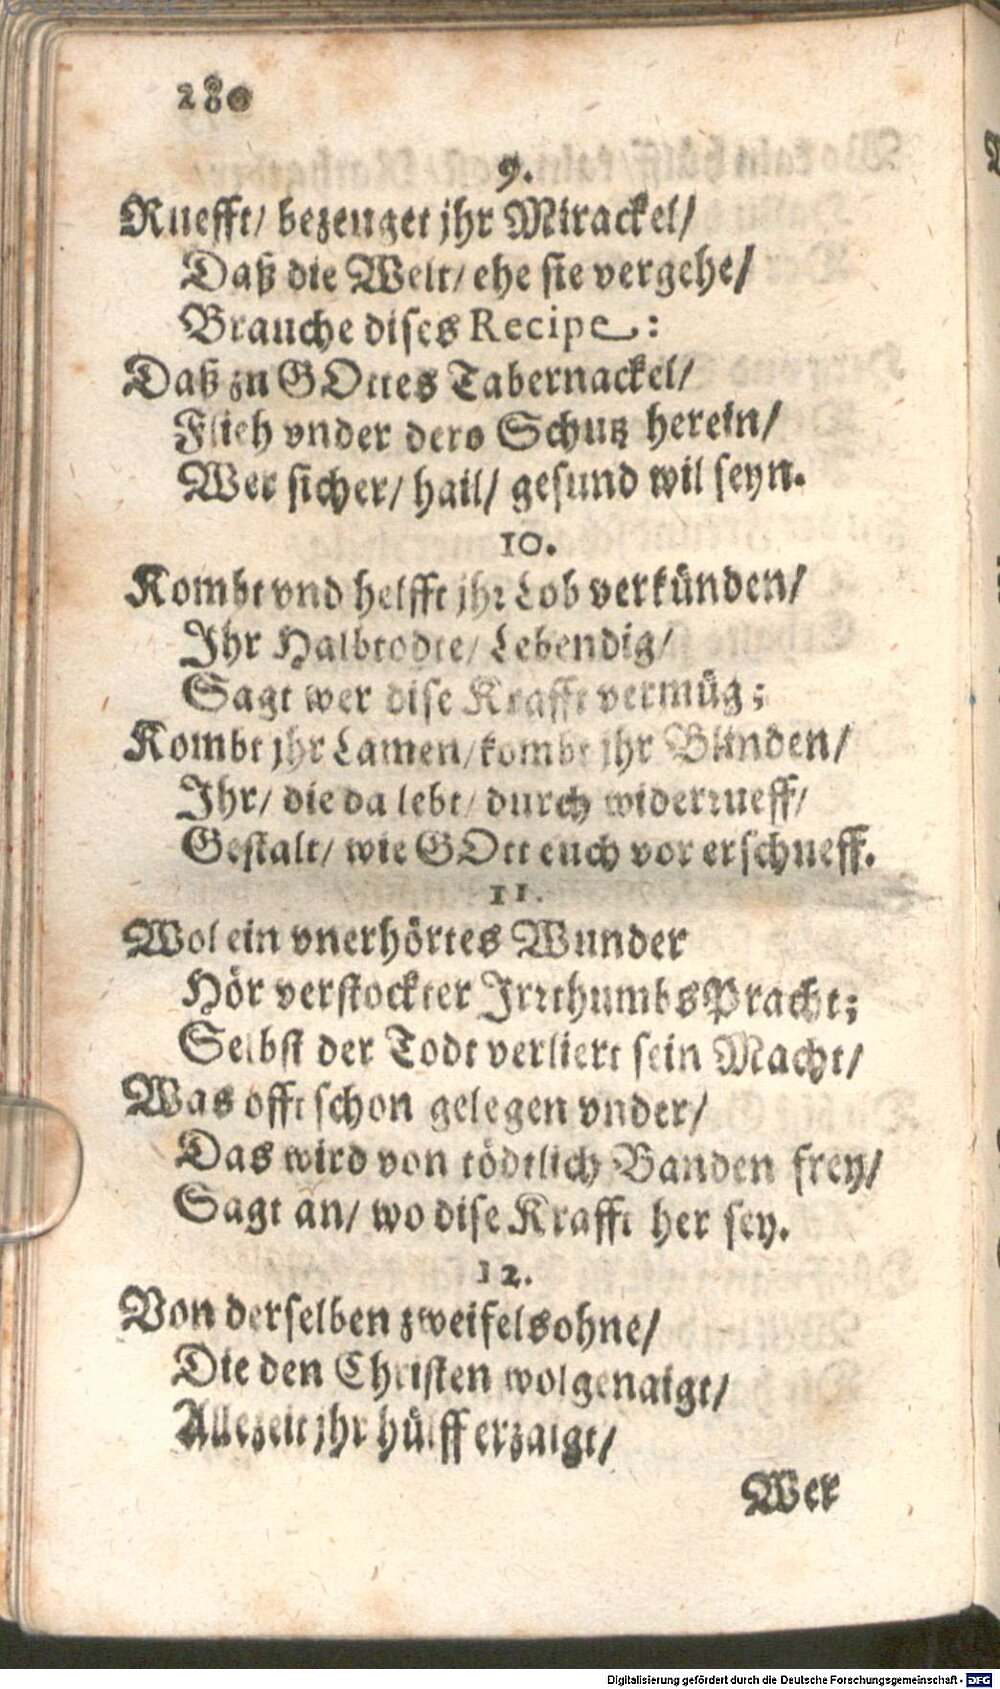 280
9.
Ruefft/ bezeuget jhr Mirackel/
Daß die Welt/ ehe sie vergehe/
Brauche dises Recipe:
Daß zu GOttes Tabernackel/
Flieh vnder dero Schutz herein/
Wer sicher/ hail/ gesund wil seyn.
10.
Kombt vnd helfft jhr Lob verkünden/
Ihr Halbtodte/ Lebendig/
Sagt wer dise Krafft vermüg;
Kombt jhr Lamen/ kombt jhr Blinden/
Ihr/ die da lebt/ durch widerrueff/
Gestalt/ wie GOtt euch vor erschueff.
11.
Wol ein vnerhörtes Wunder
Hör verstockter Irrthumbs Pracht;
Selbst der Todt verliert sein Macht/
Was offt schon gelegen vnder/
Das wird von tödtlich Banden frey/
Sagt an/ wo dise Krafft her sey.
12.
Von derselben zweifelsohne/
Die den Christen wolgenaigt/
Allezeit jhr hülff erzaigt/
Wer
Digitalisierung gefördert durch die Deutsche Forschungsgemeinschaft - DFG